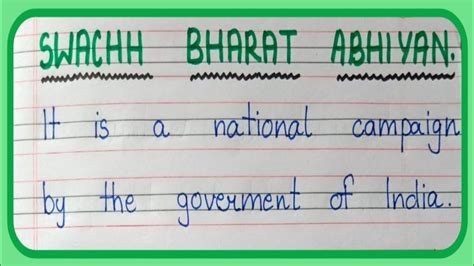 SWACHH BHARAT ABHIYAN.
It is a national campaign
by the goverment of India.